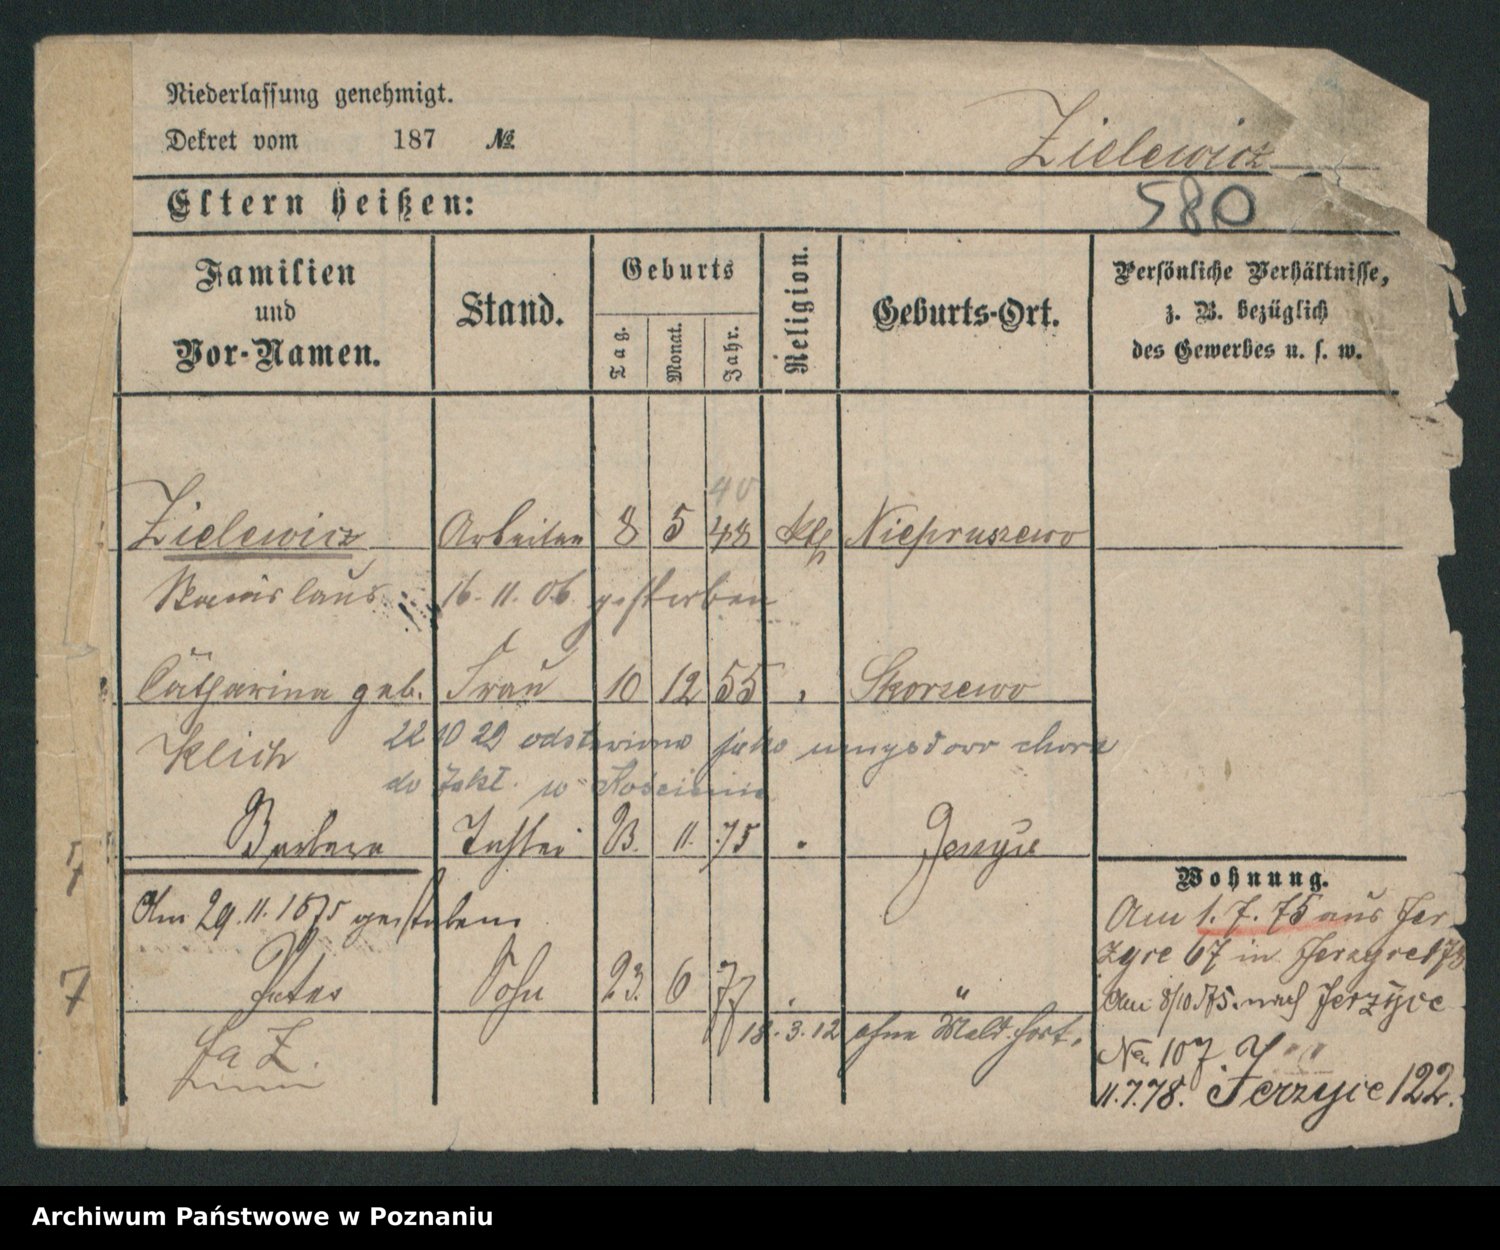 Niederlassung genehmigt.
Dekret vom 187 №
Zielewicz
580
Eltern heißen:
Familien und Vor-Namen.
Stand.
Geburts
Tag. Monat. Jahr.
Religion.
Geburts-Ort.
Persönliche Verhältnisse, z. B. bezüglich des Gewerbes u. s. w.
40
Zielewicz Arbeiter 8 5 48 kth Niepruszewo
Stanislaus 16. 11. 06 gestorben
Catharina geb. Frau 10 12 55 Skorzewo
Klich 22 10 29 odstawiono jako umysłowo chora
do Zakł. w Kościanie
Barbara Tochter 23. 11. 75 Jerzyce
Am 29. 11. 1875 gestorben.
Peter Sohn 23. 6 77 "
18. 3. 12 ohne Meld. fort.
Wohnung.
Am 1. 7. 75 aus Jer-
zyce 67 in Jerzyce
Am 8/10 75. nach Jerzyce
No 107
11.7.78. Jerzyce 122.
7